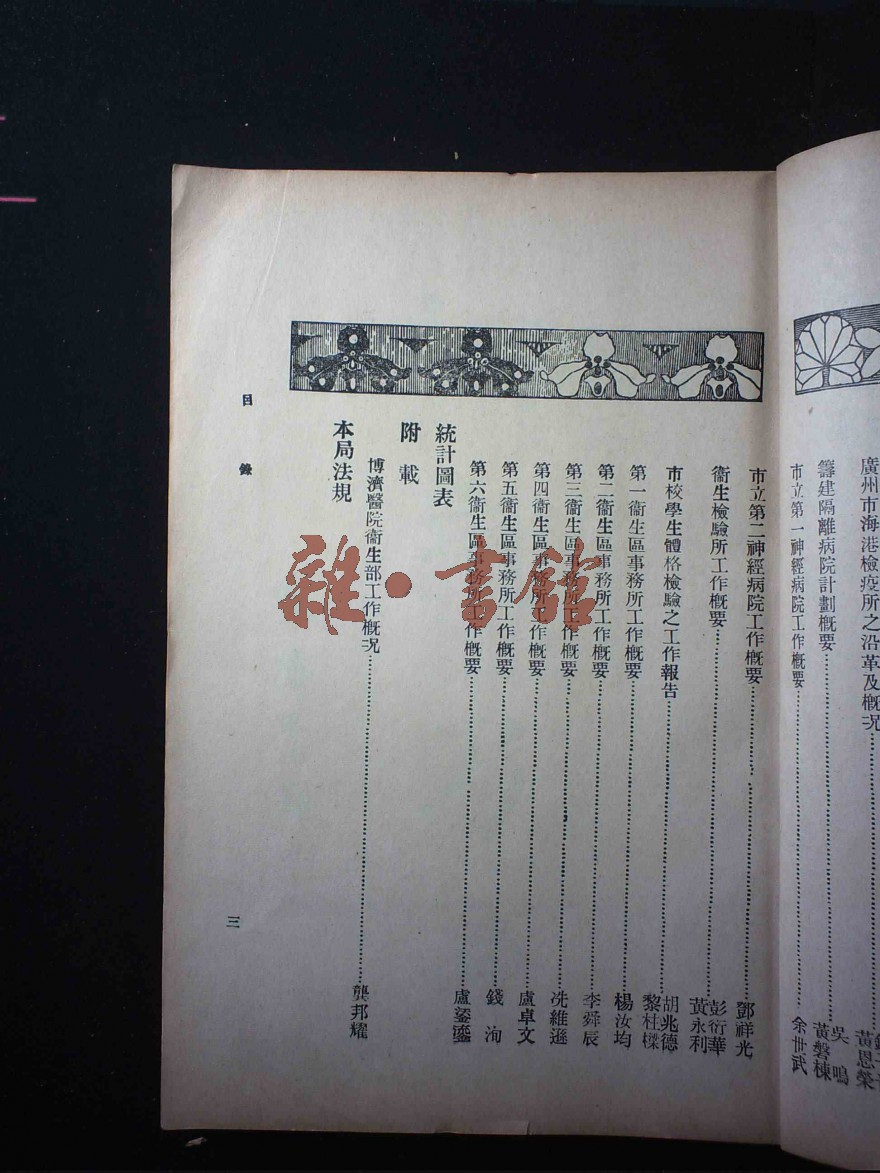 廣州市海港檢疫所之沿革及概況
黃恩榮
籌建隔離病院計劃概要
吳鳴
黃磐棟
市立第一神經病院工作概要
余世武
市立第二神經病院工作概要
鄧祥光
衞生檢驗所工作概要
彭衍華
黃永利
市校學生體格檢驗之工作報告
胡兆德
黎杜樑
第一衞生區事務所工作概要
楊汝均
第二衞生區事務所工作概要
李舜辰
第三衞生區事務所工作概要
冼維遜
第四衞生區事務所工作概要
盧卓文
第五衞生區事務所工作概要
錢洵
第六衞生區事務所工作概要
盧鋈
統計圖表
附載
博濟醫院衞生部工作概況
龔邦耀
本局法規
目錄
三
雜·書館